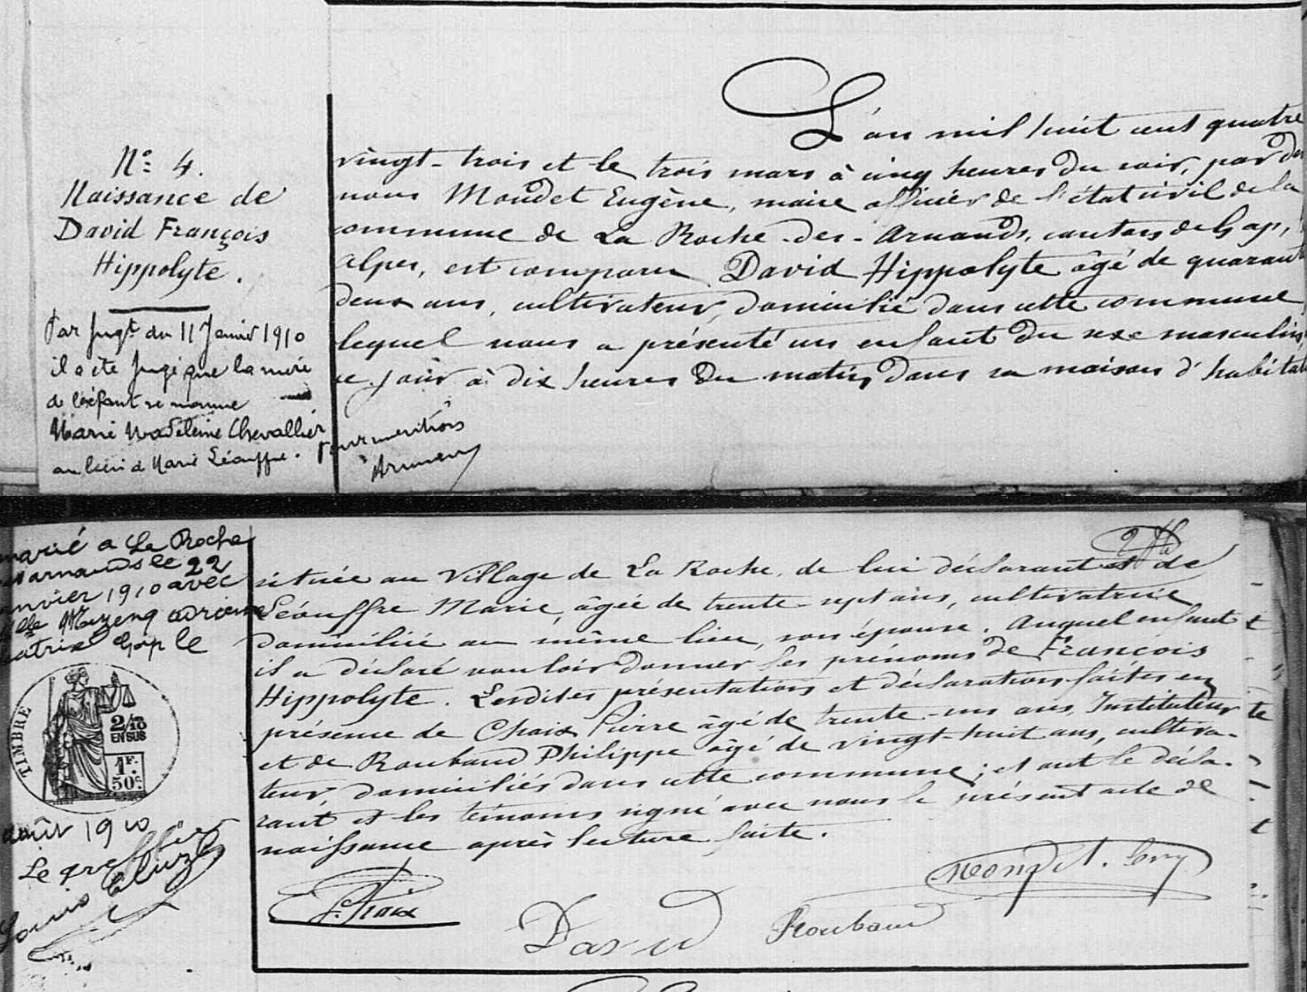 N° 4.
Naissance de
David François
Hippolyte.
Par jugt du 11 Janvier 1910
il a été jugé que la mère
de l'enfant se nomme
Marie Madeleine Chevallier
au lieu de Marie Léouffre.
Pour mention
L'an mil huit cent quatre
vingt-trois et le trois mars à cinq heures du soir, par de
nous Mondet Eugène, maire officier de l'état civil de la
commune de La Roche-des-Arnauds, canton de Gap,
Alpes, est comparu David Hippolyte âgé de quarante
deux ans, cultivateur, domicilié dans cette commune
lequel nous a présenté un enfant du sexe masculin,
ce jour à dix heures du matin, dans sa maison d'habitat
située au village de La Roche, de lui déclarant et de
Léouffre Marie, âgée de trente-sept ans, cultivatrice
domiciliée au même lieu, son épouse. Auquel enfant
il a déclaré vouloir donner les prénoms de François
Hippolyte. Lesdites présentation et déclaration faites en
présence de Chaix Pierre âgé de trente-un ans, Instituteur
et de Roubaud Philippe âgé de vingt huit ans, cultiva-
teur domiciliés dans cette commune; et ont le décla-
rant et les témoins signé avec nous le présent acte de
naissance après lecture faite.
P. Chaix
David
Roubaud
Mondet
marié à La Roche
Arnauds le 22
janvier 1910 avec
Mlle Mazeng Adrienne
Béatrix Gap le
TIMBRE
2/10
EN SUS
1F.
50c.
août 1910
Le greffier
Louis